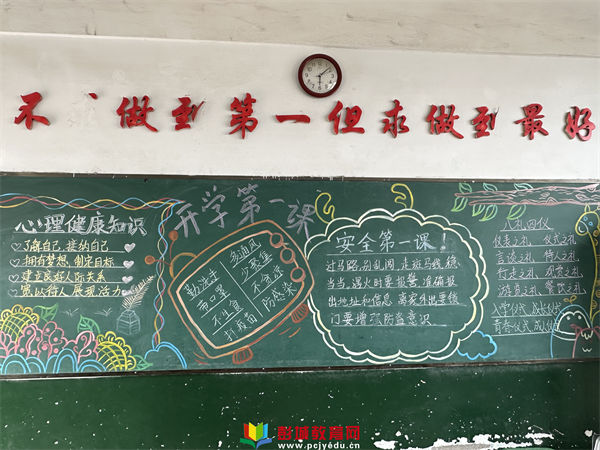 不 做到第一但求做到最好
心理健康知识
了解自己 接纳自己
拥有梦想 制定目标
建立良好人际关系
宽以待人 展现活力
开学第一课
勤洗手
戴口罩
不生食
打疫苗
多通风
少聚集
不恐慌
防感染
安全第一课！
过马路,别乱闯 走斑马线,稳
当当,遇火时要报警 准确报
出地址和信息 离家外出要锁
门要增强防盗意识
八礼四仪
仪表之礼 仪式之礼
言谈之礼 待人之礼
行走之礼 观赏之礼
游览之礼 餐饮之礼
入学仪式 成长仪式
青春仪式 成人仪式
彭城教育网
www.pcjyedu.cn